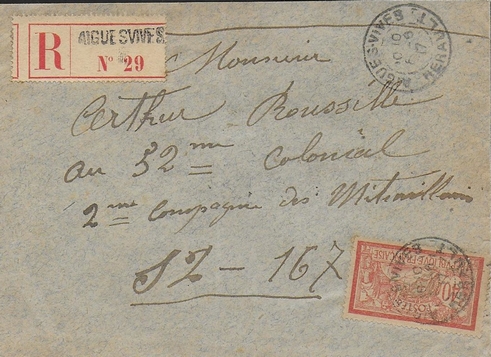 R AIGUESVIVES
N° 29
AIGUESVIVES HERAULT
Monsieur
Arthur Rousselle
au 52me Colonial
2me Compagnie des Mitrailleurs
SZ - 167
POSTES